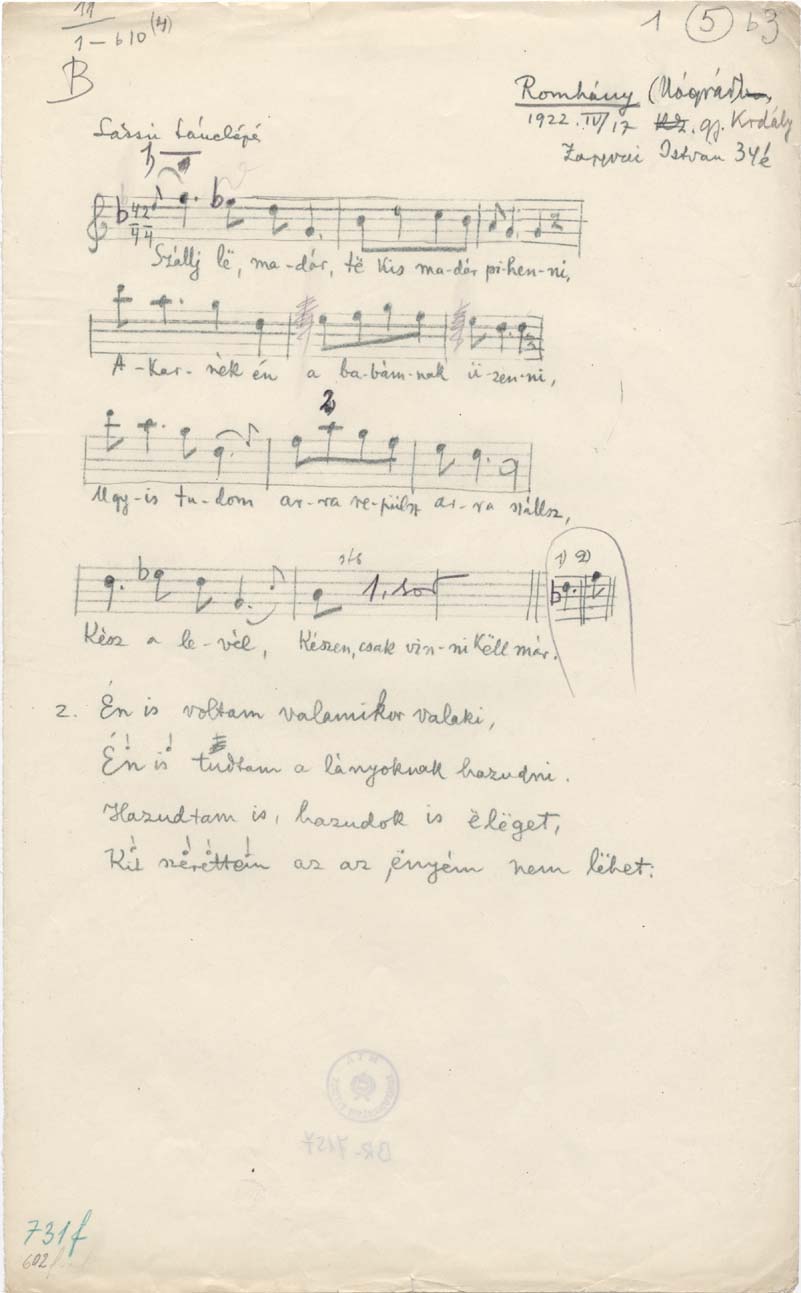 11
1 – 610 (4)
1 (5) b3
B
Romhány (Nógrád
1922. IV/17 gj. Král​y
István 34é
Lassú tánclépé
Szállj lë, ma-dár, të kis ma-dár pi-hen-ni,
A-kar-nék én a ba-bám-nak ü-zen-ni,
2
Ugy-is tu-dom ar-ra re-pülsz ar-ra szállsz,
1. sor
1) 2)
Kész a le-vél, Készen, csak vin-ni Këll már.
2. Én is voltam valamikor valaki,
Én is tudtam a lányoknak hazudni.
Hazudtam is, hazudok is ëlëget,
Kit szërëttem az az ënyém nem lëhet.
BR-7157
731f
602